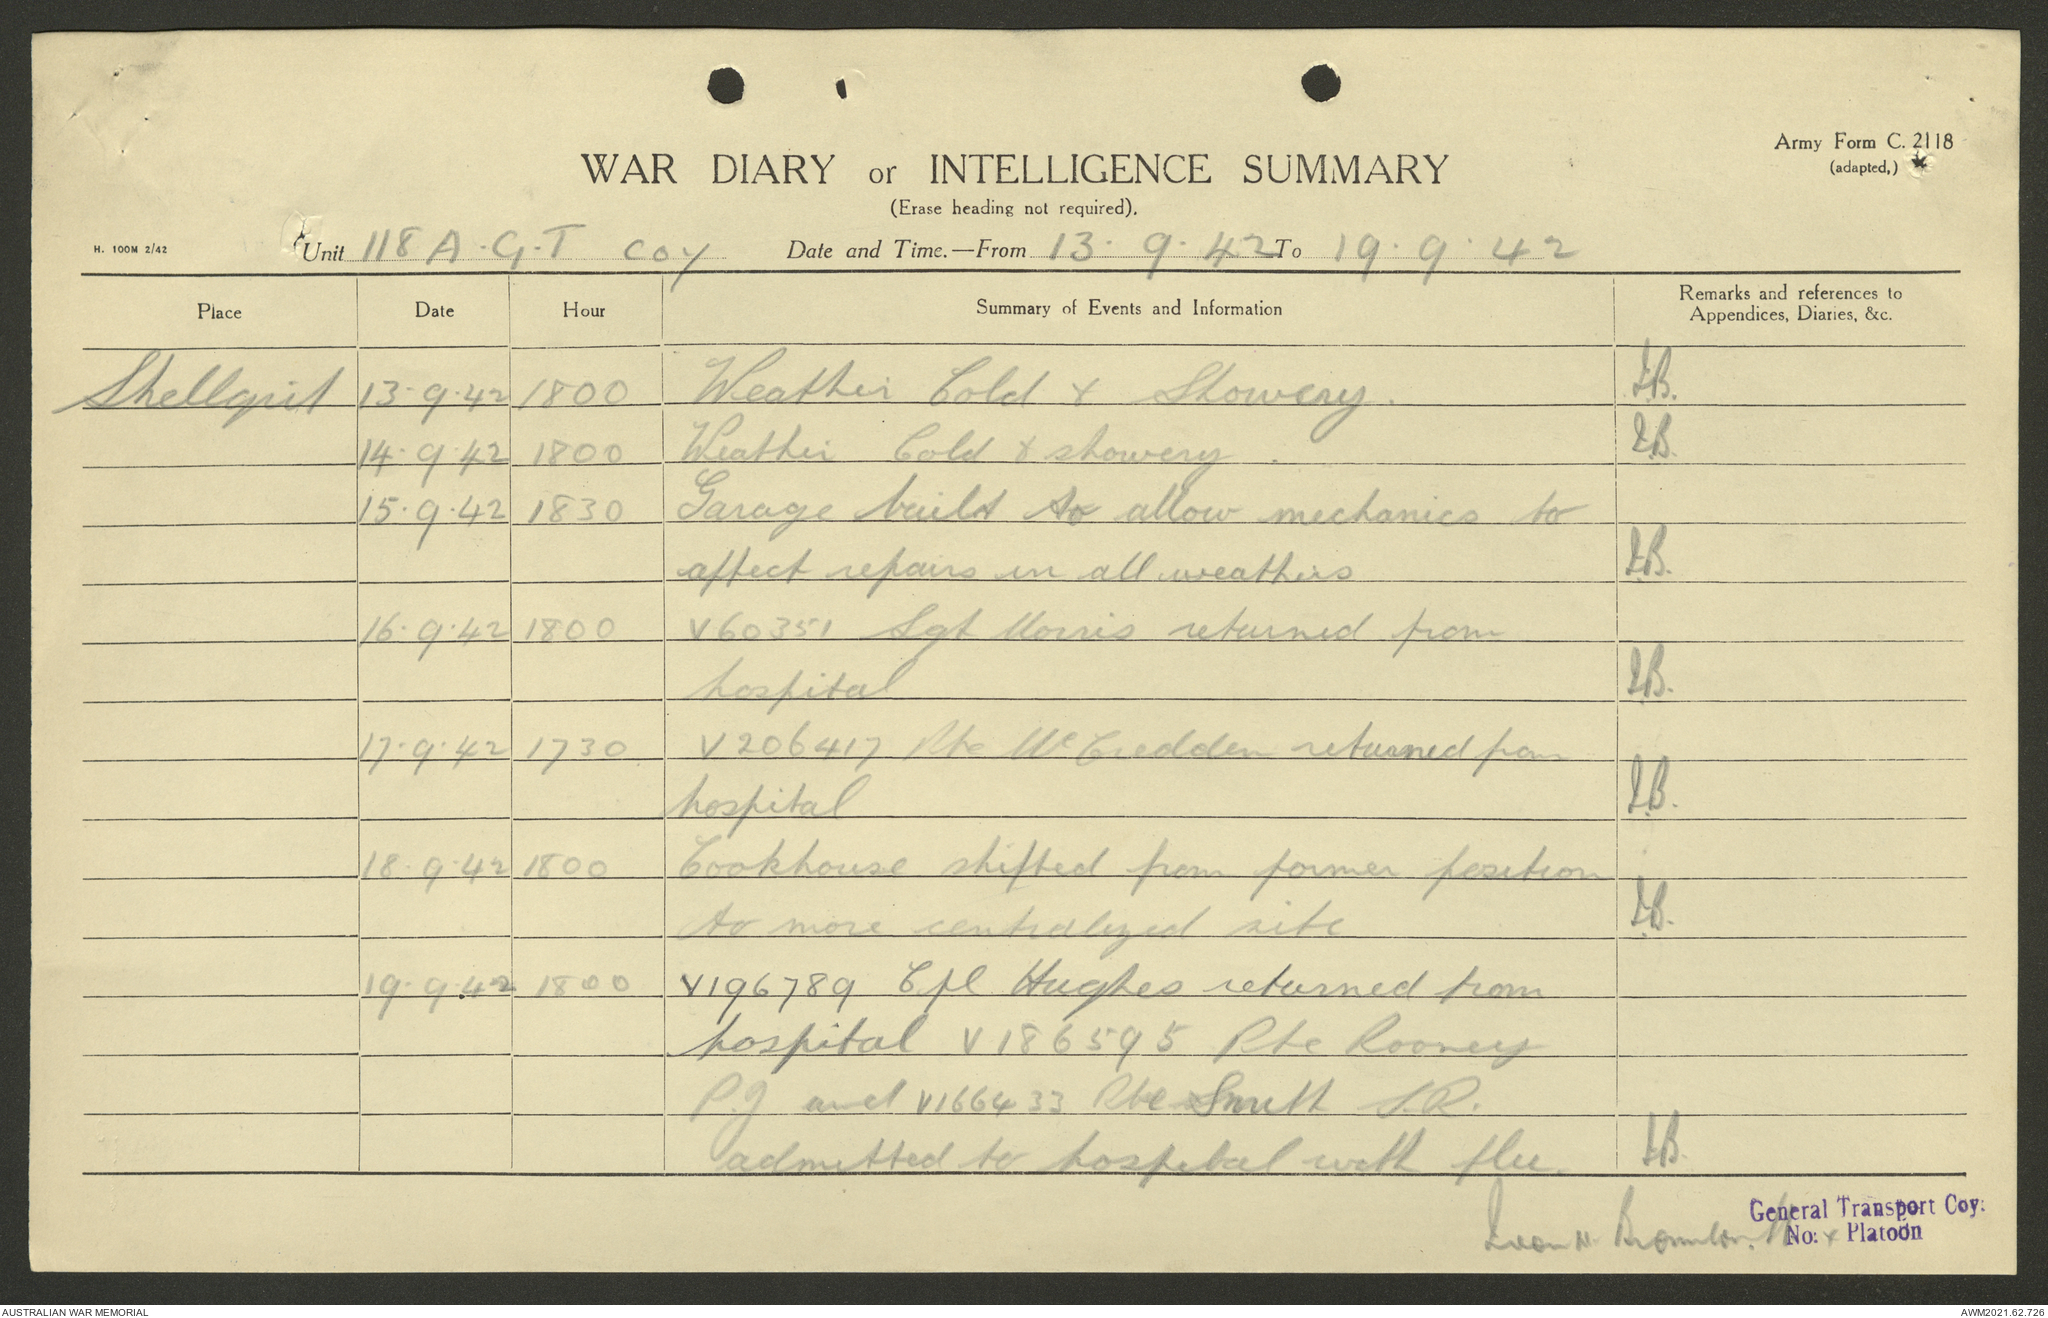 Army Form C. 2118
(adapted,)
WAR DIARY or INTELLIGENCE SUMMARY
(Erase heading not required).
H. 100M 2/42 Unit 118 A.G.T Coy Date and Time.—From 13.9.42 To 19.9.42
Place Date Hour Summary of Events and Information Remarks and references to
Appendices, Diaries, &c.
Shellgrit 13.9.42 1800 Weather Cold & Showery. I.B.
14.9.42 1800 Weather Cold & showery. I.B.
15.9.42 1830 Garage built to allow mechanics to
affect repairs in all weathers I.B.
16.9.42 1800 V60351 Sgt Morris returned from
hospital I.B.
17.9.42 1730 V206417 Pte McCredden returned from
hospital I.B.
18.9.42 1800 Cookhouse shifted from former position
to more centralized site I.B.
19.9.42 1800 V196789 Cpl Hughes returned from
hospital V186595 Pte Rooney
P.J and V166433 Pte Smith S.R.
admitted to hospital with flu. I.B.
General Transport Coy:
No: Platoon
AUSTRALIAN WAR MEMORIAL AWM2021.62.726